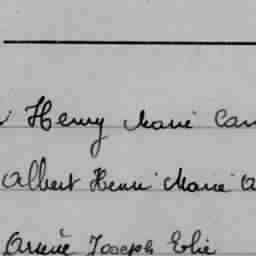 Henry Marie Cam
Albert Henri Marie A
Arsène Joseph Elie